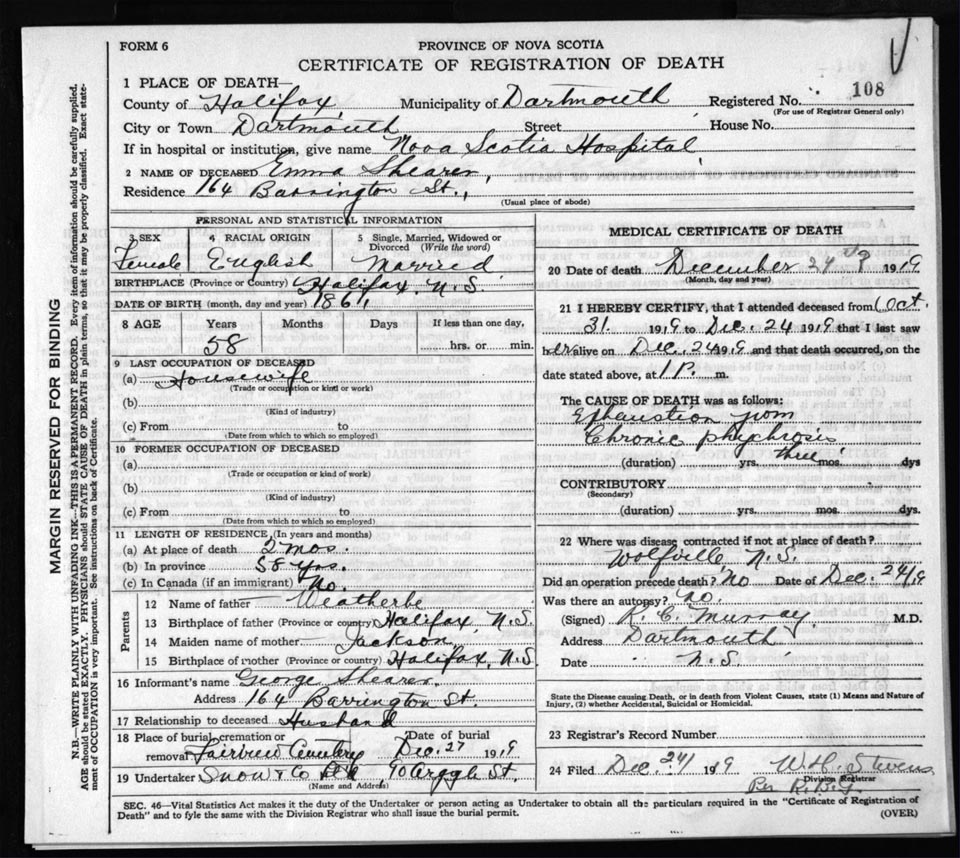 FORM 6
PROVINCE OF NOVA SCOTIA
CERTIFICATE OF REGISTRATION OF DEATH
1 PLACE OF DEATH—
County of Halifax, Municipality of Dartmouth Registered No. 108
(For use of Registrar General only)
City or Town Dartmouth Street House No.
If in hospital or institution, give name Nova Scotia Hospital,
2 NAME OF DECEASED Emma Shearer,
Residence 164 Barrington St.,
(Usual place of abode)
PERSONAL AND STATISTICAL INFORMATION
3 SEX 4 RACIAL ORIGIN 5 Single, Married, Widowed or Divorced (Write the word)
Female English Married
BIRTHPLACE (Province or Country) Halifax, N.S.
DATE OF BIRTH (month, day and year) 1861,
8 AGE Years Months Days If less than one day,
58 hrs. or min.
9 LAST OCCUPATION OF DECEASED
(a) Housewife
(Trade or occupation or kind or work)
(b)
(Kind of industry)
(c) From to
(Date from which to which so employed)
10 FORMER OCCUPATION OF DECEASED
(a)
(Trade or occupation or kind of work)
(b)
(Kind of industry)
(c) From to
(Date from which to which so employed)
11 LENGTH OF RESIDENCE (In years and months)
(a) At place of death 2 mos.
(b) In province 58 yrs.
(c) In Canada (if an immigrant) No.
Parents
12 Name of father Weatherbe
13 Birthplace of father (Province or country) Halifax, N.S.
14 Maiden name of mother Jackson
15 Birthplace of mother (Province or country) Halifax, N.S
16 Informant's name George Shearer.
Address 164 Barrington St.
17 Relationship to deceased Husband
18 Place of burial, cremation or removal Fairview Cemetery Date of burial Dec. 27 1919
19 Undertaker Snow & Co 90 Argyle St,
(Name and Address)
MEDICAL CERTIFICATE OF DEATH
20 Date of death December 24 1919
(Month, day and year)
21 I HEREBY CERTIFY, that I attended deceased from Oct.
31. 1919 to Dec. 24 1919 that I last saw
her alive on Dec. 24 1919 and that death occurred, on the
date stated above, at 1 P. m.
The CAUSE OF DEATH was as follows:
Exhaustion from
Chronic phychrosis
(duration) yrs. three mos. dys
CONTRIBUTORY
(Secondary)
(duration) yrs. mos. dys.
22 Where was disease contracted if not at place of death?
Wolfville, N.S.
Did an operation precede death? No Date of Dec. 24/19
Was there an autopsy? No.
(Signed) R. C. Murray. M.D.
Address Dartmouth
Date N.S.
State the Disease causing Death, or in death from Violent Causes, state (1) Means and Nature of
Injury, (2) whether Accidental, Suicidal or Homicidal.
23 Registrar's Record Number
24 Filed Dec. 24/ 1919 W. H. Stevens
Division Registrar
Per R.B.G.
SEC. 46—Vital Statistics Act makes it the duty of the Undertaker or person acting as Undertaker to obtain all the particulars required in the "Certificate of Registration of
Death" and to fyle the same with the Division Registrar who shall issue the burial permit.
(OVER)
MARGIN RESERVED FOR BINDING
N.B.—WRITE PLAINLY WITH UNFADING INK—THIS IS A PERMANENT RECORD. Every item of information should be carefully supplied.
AGE should be stated EXACTLY. PHYSICIANS should STATE CAUSE OF DEATH in plain terms, so that it may be properly classified. Exact state-
ment of OCCUPATION is very important. See instructions on back of Certificate.